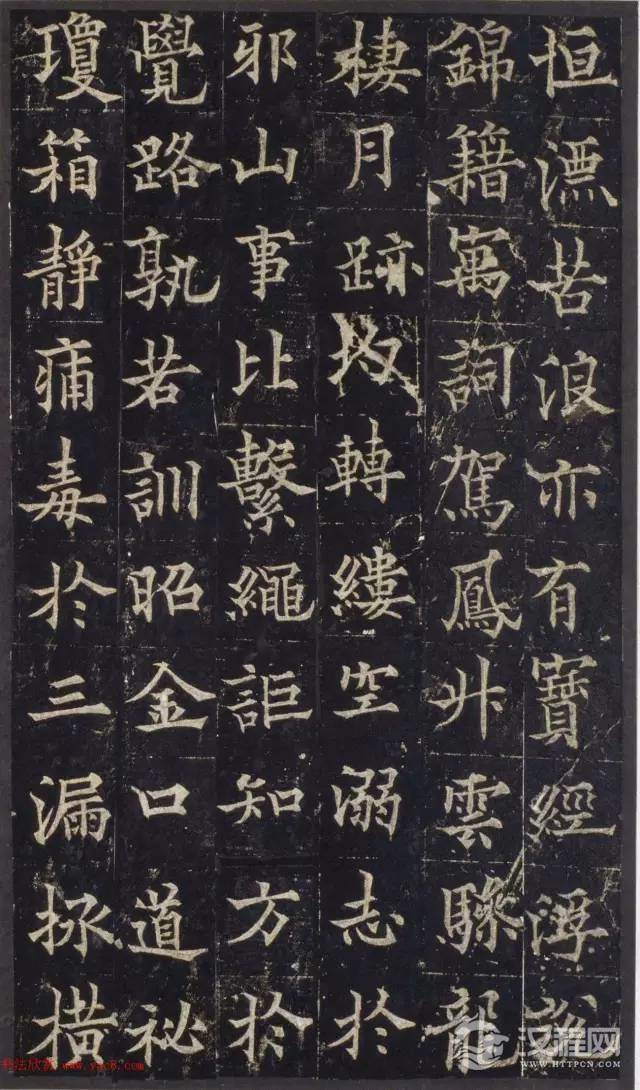 恒漂苦浪亦有寶經浮說
錦籍寓詞駕鳳升雲驂龍
棲月跡均轉縷空溺志於
邪山事比繫繩詎知方於
覺路孰若訓昭金口道祕
瓊箱靜痡毒於三漏拯橫
汉程网
HTTPCN.COM
书法欣赏 www.yac8.com